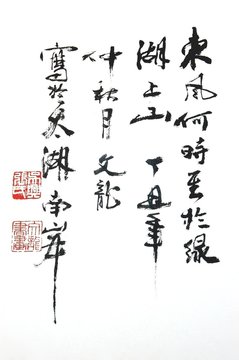 東風何時至於綠
湖上山 丁丑年
仲秋月 文龍
寫於太湖南岸